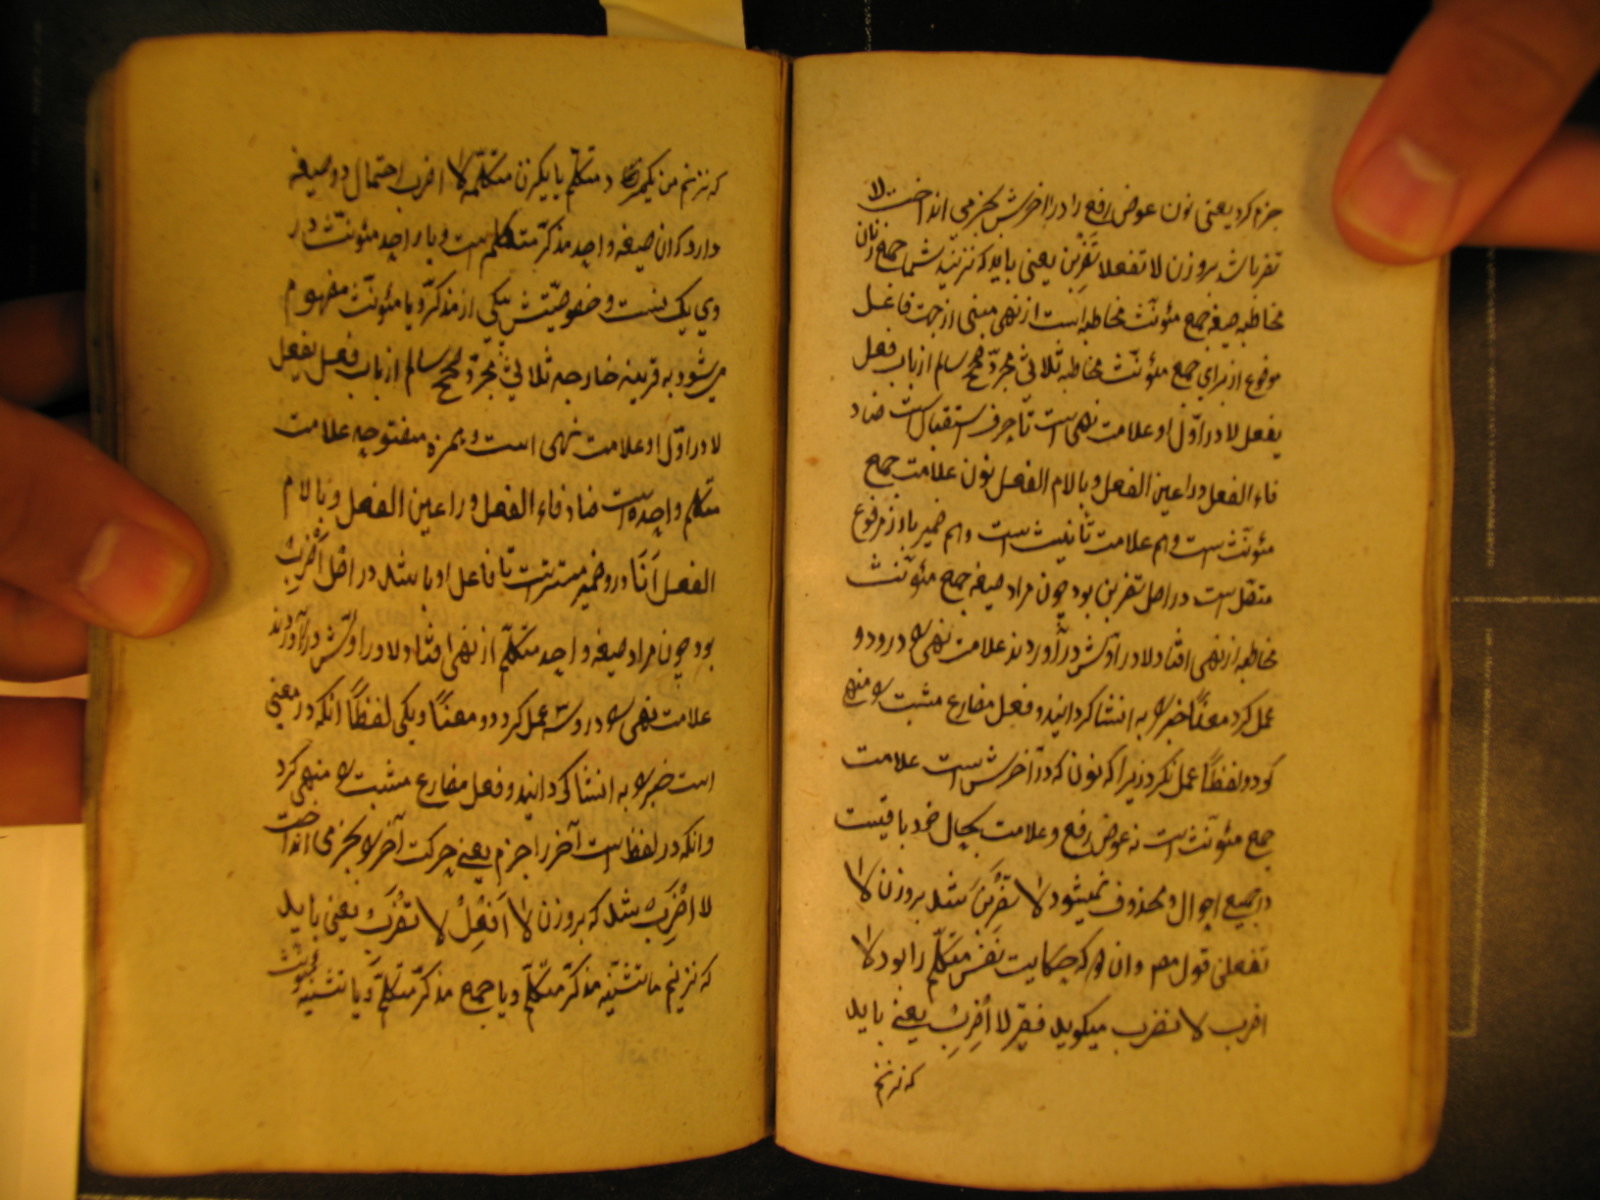 جزم کرد یعنی نون عوض رفع را در اخرش بجزمی انداخت لا
تضربا شد بروزن لا تفعلا تضربن یعنی باید که نزنید شما جمع زنان
مخاطبه صیغه جمع مئونّث مخاطبه است از نهی مبنی از جهت فاعل
موضوع از برای جمع مئونّث مخاطبه ثلاثی مجرّد صحیح سالم از باب فعل
یفعل لا در اوّل او علامت نهی است تا حرف استقبال است ضاد
فاء الفعل و را عین الفعل و با لام الفعل نون علامت جمع
مئونّث است و هم علامت تأنیث است و هم ضمیر بارز مرفوع
متصّل است در اصل تضربن بود چون مراد صیغه جمع مئونّث
مخاطبه از نهی افتاد لا در اوّلش در آوردند علامت نهی در و دو
عمل کرد معناً خبر به انشا کردانید و فعل مضارع مثبت منهی
کرد و لفظاً عمل نکرد زیرا که نون که در آخرش است علامت
جمع مئونّث است نه عوض رفع و علامت بحال خود باقیست
در جمیع احوال و محذوف نمیشود لا تضربن شد بروزن لا
تفعلن قول مص و ان که حکایت نفس متکلّم را بود لا
اضرب لا نضرب میکوید فقیر لا أضرب یعنی باید
که نزنم
که نزنم من یکمرد متکلّم یا یکزن متکلّمه لا اضرب احتمال دو صیغه
دارد که ان صیغه واحد مذکّر متکلم است و یا واحد مئونّث در
وی یک نیست و خصوصیّتش بیکی از مذکّر و یا مئونّث مفهوم
میشود به قرینه خارجه ثلاثی مجرّد صحیح سالم از باب فعل یفعل
لا در اوّل او علامت نهی است و همزه مفتوحه علامت
متکلم واحده است ضاد فاء الفعل و را عین الفعل و با لام
الفعل اَنَا در و ضمیر مستتر است تا فاعل او باشد در اصل اَضْرِبُ
بود چون مراد صیغه واحد متکلّم از نهی افتاد لا در اوّلش در آوردند
علامت نهی در و سه عمل کرد دو معناً و یکی لفظاً انکه در معنی
است خبر به انشا کردانید و فعل مضارع مثبت منهی کرد
و انکه در لفظ است آخر را جزم یعنی حرکت آخر بجزمی انداخت
لا اَضْرِبْ شد که بروزن لا اَفْعِلْ لا نضرب یعنی باید
که نزنیم ما تثنیّه مذکّر متکلّم و یا جمع مذکّر متکلّم و یا تثنیه مئونّث